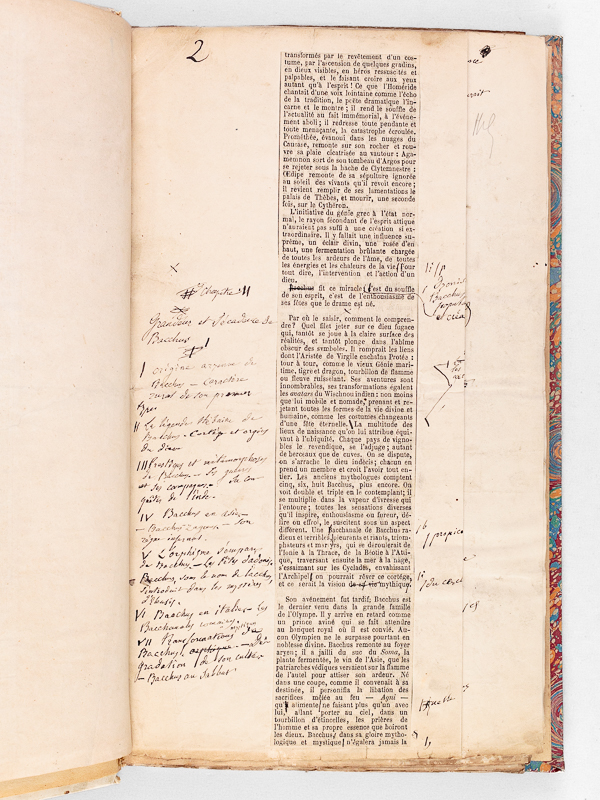 2
transformés par le revêtement d'un cos-
tume, par l'ascension de quelques gradins,
en dieux visibles, en héros ressuscités et
palpables, et le faisant croire aux yeux
autant qu'à l'esprit! Ce que l'Homéride
chantait d'une voix lointaine comme l'écho
de la tradition, le poète dramatique l'in-
carne et le montre; il rend le souffle de
l'actualité au fait immémorial, à l'événe-
ment aboli; il redresse toute pendante et
toute menaçante, la catastrophe écroulée.
Prométhée, évanoui dans les nuages du
Caucase, remonte sur son rocher et rou-
vre sa plaie cicatrisée au vautour: Aga-
memnon sort de son tombeau d'Argos pour
se rejeter sous la hache de Clytemnestre:
Œdipe remonte de sa sépulture ignorée
au soleil des vivants qu'il revoit encore;
Il revient remplir de ses lamentations le
palais de Thèbes, et mourir, une seconde
fois, sur le Cythéron.
L'initiative du génie grec à l'état nor-
mal, le rayon fécondant de l'esprit attique
n'auraient pas suffi à une création si ex-
traordinaire. Il y fallait une influence su-
prême, un éclair divin, une rosée d'en
haut, une fermentation brûlante chargée
de toutes les ardeurs de l'âme, de toutes
les énergies et les chaleurs de la vie. Pour
tout dire, l'intervention et l'action d'un
dieu.
Bacchus fit ce miracle, c'est du souffle
de son esprit, c'est de l'enthousiasme de
ses fêtes que le drame est né.
Par où le saisir, comment le compren-
dre? Quel filet jeter sur ce dieu fugace
qui, tantôt se joue à la claire surface des
réalités, et tantôt plonge dans l'abîme
obscur des symboles. Il romprait les liens
dont l'Aristée de Virgile enchaîna Protée:
tour à tour, comme le vieux Génie mari-
time, tigre et dragon, tourbillon de flamme
ou fleuve ruisselant. Ses aventures sont
innombrables, ses transformations égalent
les avatars du Wischnou indien: non moins
que lui mobile et nomade, prenant et re-
jetant toutes les formes de la vie divine et
humaine, comme les costumes changeants
d'une fête éternelle. La multitude des
lieux de naissance qu'on lui attribue équi-
vaut à l'ubiquité. Chaque pays de vigno-
bles le revendique, se l'adjuge; autant
de berceaux que de cuves. On se dispute,
on s'arrache le dieu indécis; chacun en
prend un membre et croit l'avoir tout en-
tier. Les anciens mythologues comptent
cinq, six, huit Bacchus, plus encore. On
voit double et triple en le contemplant; il
se multiplie dans la vapeur d'ivresse qui
l'entoure; toutes les sensations diverses
qu'il inspire, enthousiasme ou fureur, dé-
lire ou effroi, le suscitent sous un aspect
différent. Une Bacchanale de Bacchus ra-
dieux et terribles, pleurants et riants, triom-
phateurs et martyrs, qui se déroulerait de
l'Ionie à la Thrace, de la Béotie à l'Atti-
que, traversant ensuite la mer à la nage,
s'essaimant sur les Cyclades, envahissant
l'Archipel, on pourrait rêver ce cortège,
et ce serait la vision de sa vie mythique.
Son avènement fut tardif; Bacchus est
le dernier venu dans la grande famille
de l'Olympe. Il y arrive en retard comme
un prince aviné qui se fait attendre
au banquet royal où il est convié. Au-
cun Olympien ne le surpasse pourtant en
noblesse divine. Bacchus remonte au foyer
aryen; il a jailli du suc du Soma, la
plante fermentée, le vin de l'Asie, que les
patriarches védiques versaient sur la flamme
de l'autel pour attiser son ardeur. Né
dans une coupe, comme il convenait à sa
destinée, il personnifia la libation des
sacrifices mêlée au feu — Agni —
qu'il alimente, ne faisant plus qu'un avec
lui, allant porter au ciel, dans un
tourbillon d'étincelles, les prières de
l'homme et sa propre essence que boiront
les dieux. Bacchus, dans sa gloire mytho-
logique et mystique, n'égalera jamais la
Chapitre II
Grandeur et Décadence de
Bacchus
I origine aryenne de
Bacchus — Caractère
rural de son premier
II La légende thébaine de
Bacchus
du dieu
et ses compagnons
IV Bacchus en
— Bacchus Zagreus — Son
V L'orphisme s'empare
de Bacchus — Les fêtes d'adonis
Bacchus, sous le nom de Iacchus
s'introduit dans les mystères
d'Eleusis
VI Bacchus en italie — les
Bacchanales
VII Transformations de
Bacchus, orphique — Dé-
gradation de son culte
— Bacchus au Sabbat
propice